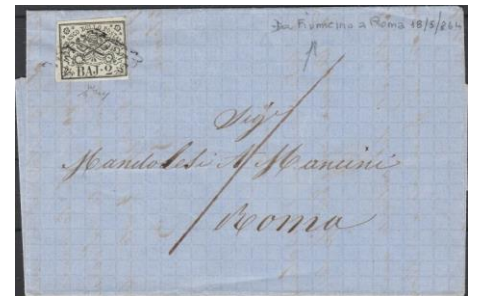 Da Fiumicino a Roma 18/5/864
BAJ. 2
Sigri
Mandolesi M Mancini
Roma